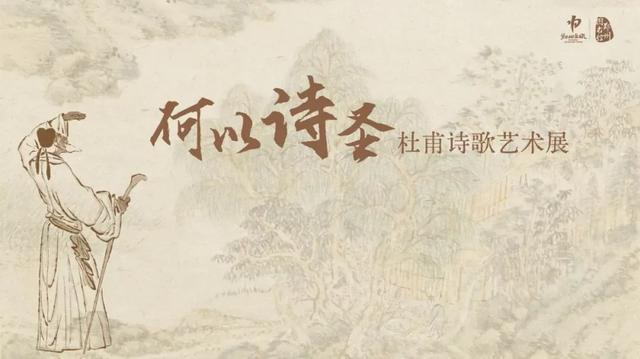 何以诗圣
杜甫诗歌艺术展